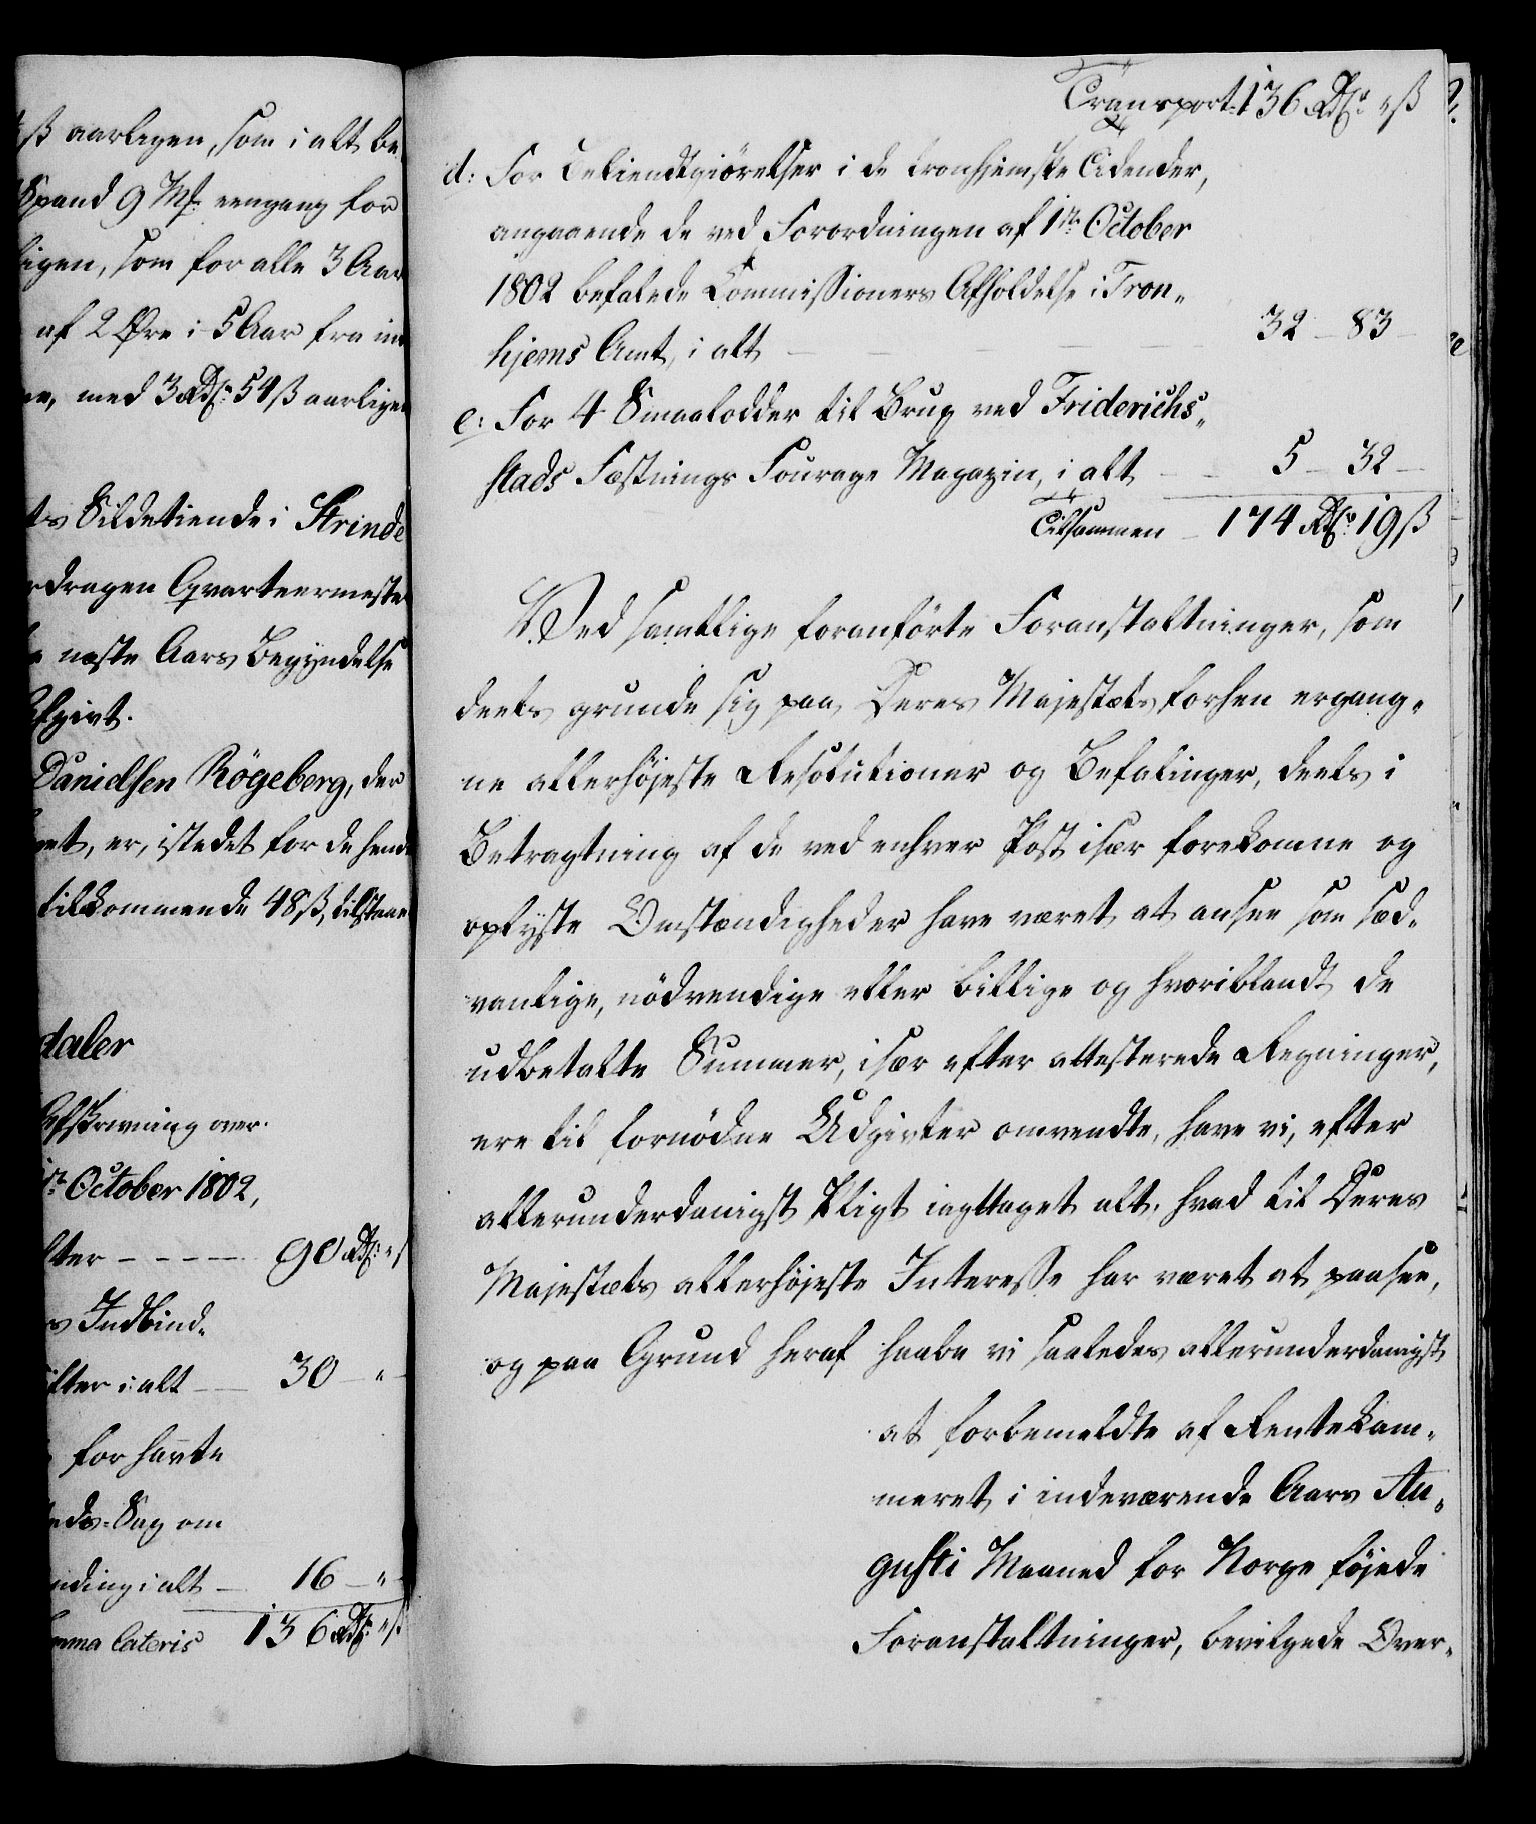 ß aarligen, som i alt be
Spand 9 Mk: eengang for
ligen, som for alle 3 Aar
af 2 Øre i 5 Aar fra in
med 3 Rdr: 54 ß aarligen
Sildetiende i Strinde
dragon Qvarteermester
næste Aars Begyndelse
Afgivt.
Danielsen Rögeberg, der
er, istedet for de hende
tilkommende 48 ß, tilstaaet
daler
Afskrivning over
October 1802,
90 Rdr: " ß
Indbind-
ilter i alt — 30 — "
for havte
Sag om
i alt — 16 — "
Summa lateris 136 Rdr: " ß
Transport 136 Rdr: " ß
d: For Bekiendtgiörelser i de tronhjemske Tidender,
angaaende de ved Forordningen af 1ste October
1802 befalede Commissioners Afholdelse i Tron-
hjems Amt, i alt — 32 — 83 —
e: For 4 Smaalodder til Brug ved Friderichs-
stads Fæstnings Fourage Magazin, i alt — 5 — 32 —
Tilsammen — 174 Rdr: 19 ß
Ved samtlige foranførte Foranstaltninger, som
deels grunde sig paa Deres Majestæts forhen ergang-
ne allerhöjeste Resolutioner og Befalinger, deels i
Betragtning af de ved enhver Post især forekomne og
oplyste Omstændigheder have været at ansee som sæd-
vanlige, nödvendige eller billige og hvoriblandt de
udbetalte Summer, især efter attesterede Regninger,
ere til fornödne Udgivter anvendte, have vi, efter
allerunderdanigst Pligt iagttaget alt, hvad til Deres
Majestæts allerhöjeste Interesse har været at paasee,
og paa Grund heraf haabe vi saaledes allerunderdanigst
at forbemeldte af Rentekam-
meret i indeværende Aars Au-
gusti Maaned for Norge föjede
Foranstaltninger, bevilgede Over-